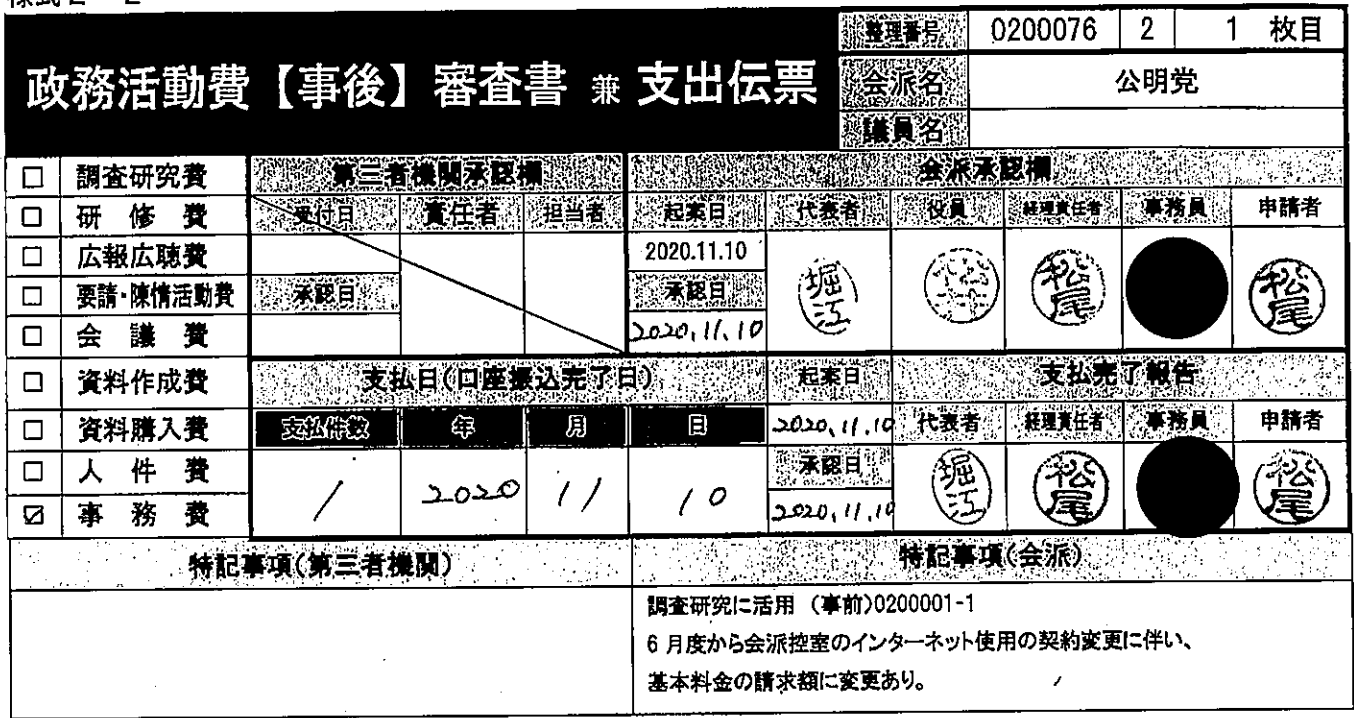 整理番号 0200076 2 1 枚目
政務活動費【事後】審査書 兼 支出伝票
会派名 公明党
議員名
□ 調査研究費
□ 研修費
□ 広報広聴費
□ 要請・陳情活動費
□ 会議費
□ 資料作成費
□ 資料購入費
□ 人件費
☑ 事務費
第三者機関承認欄
受付日 責任者 担当者
承認日
会派承認欄
起案日 代表者 役員 経理責任者 事務員 申請者
2020.11.10
承認日
2020,11,10
堀江 松尾 松尾
支払日(口座振込完了日)
支払件数 年 月 日
1 2020 11 10
起案日
2020,11,10
承認日
2020,11,10
支払完了報告
代表者 経理責任者 事務員 申請者
堀江 松尾 松尾
特記事項(第三者機関)
特記事項(会派)
調査研究に活用 (事前)0200001-1
6月度から会派控室のインターネット使用の契約変更に伴い、
基本料金の請求額に変更あり。